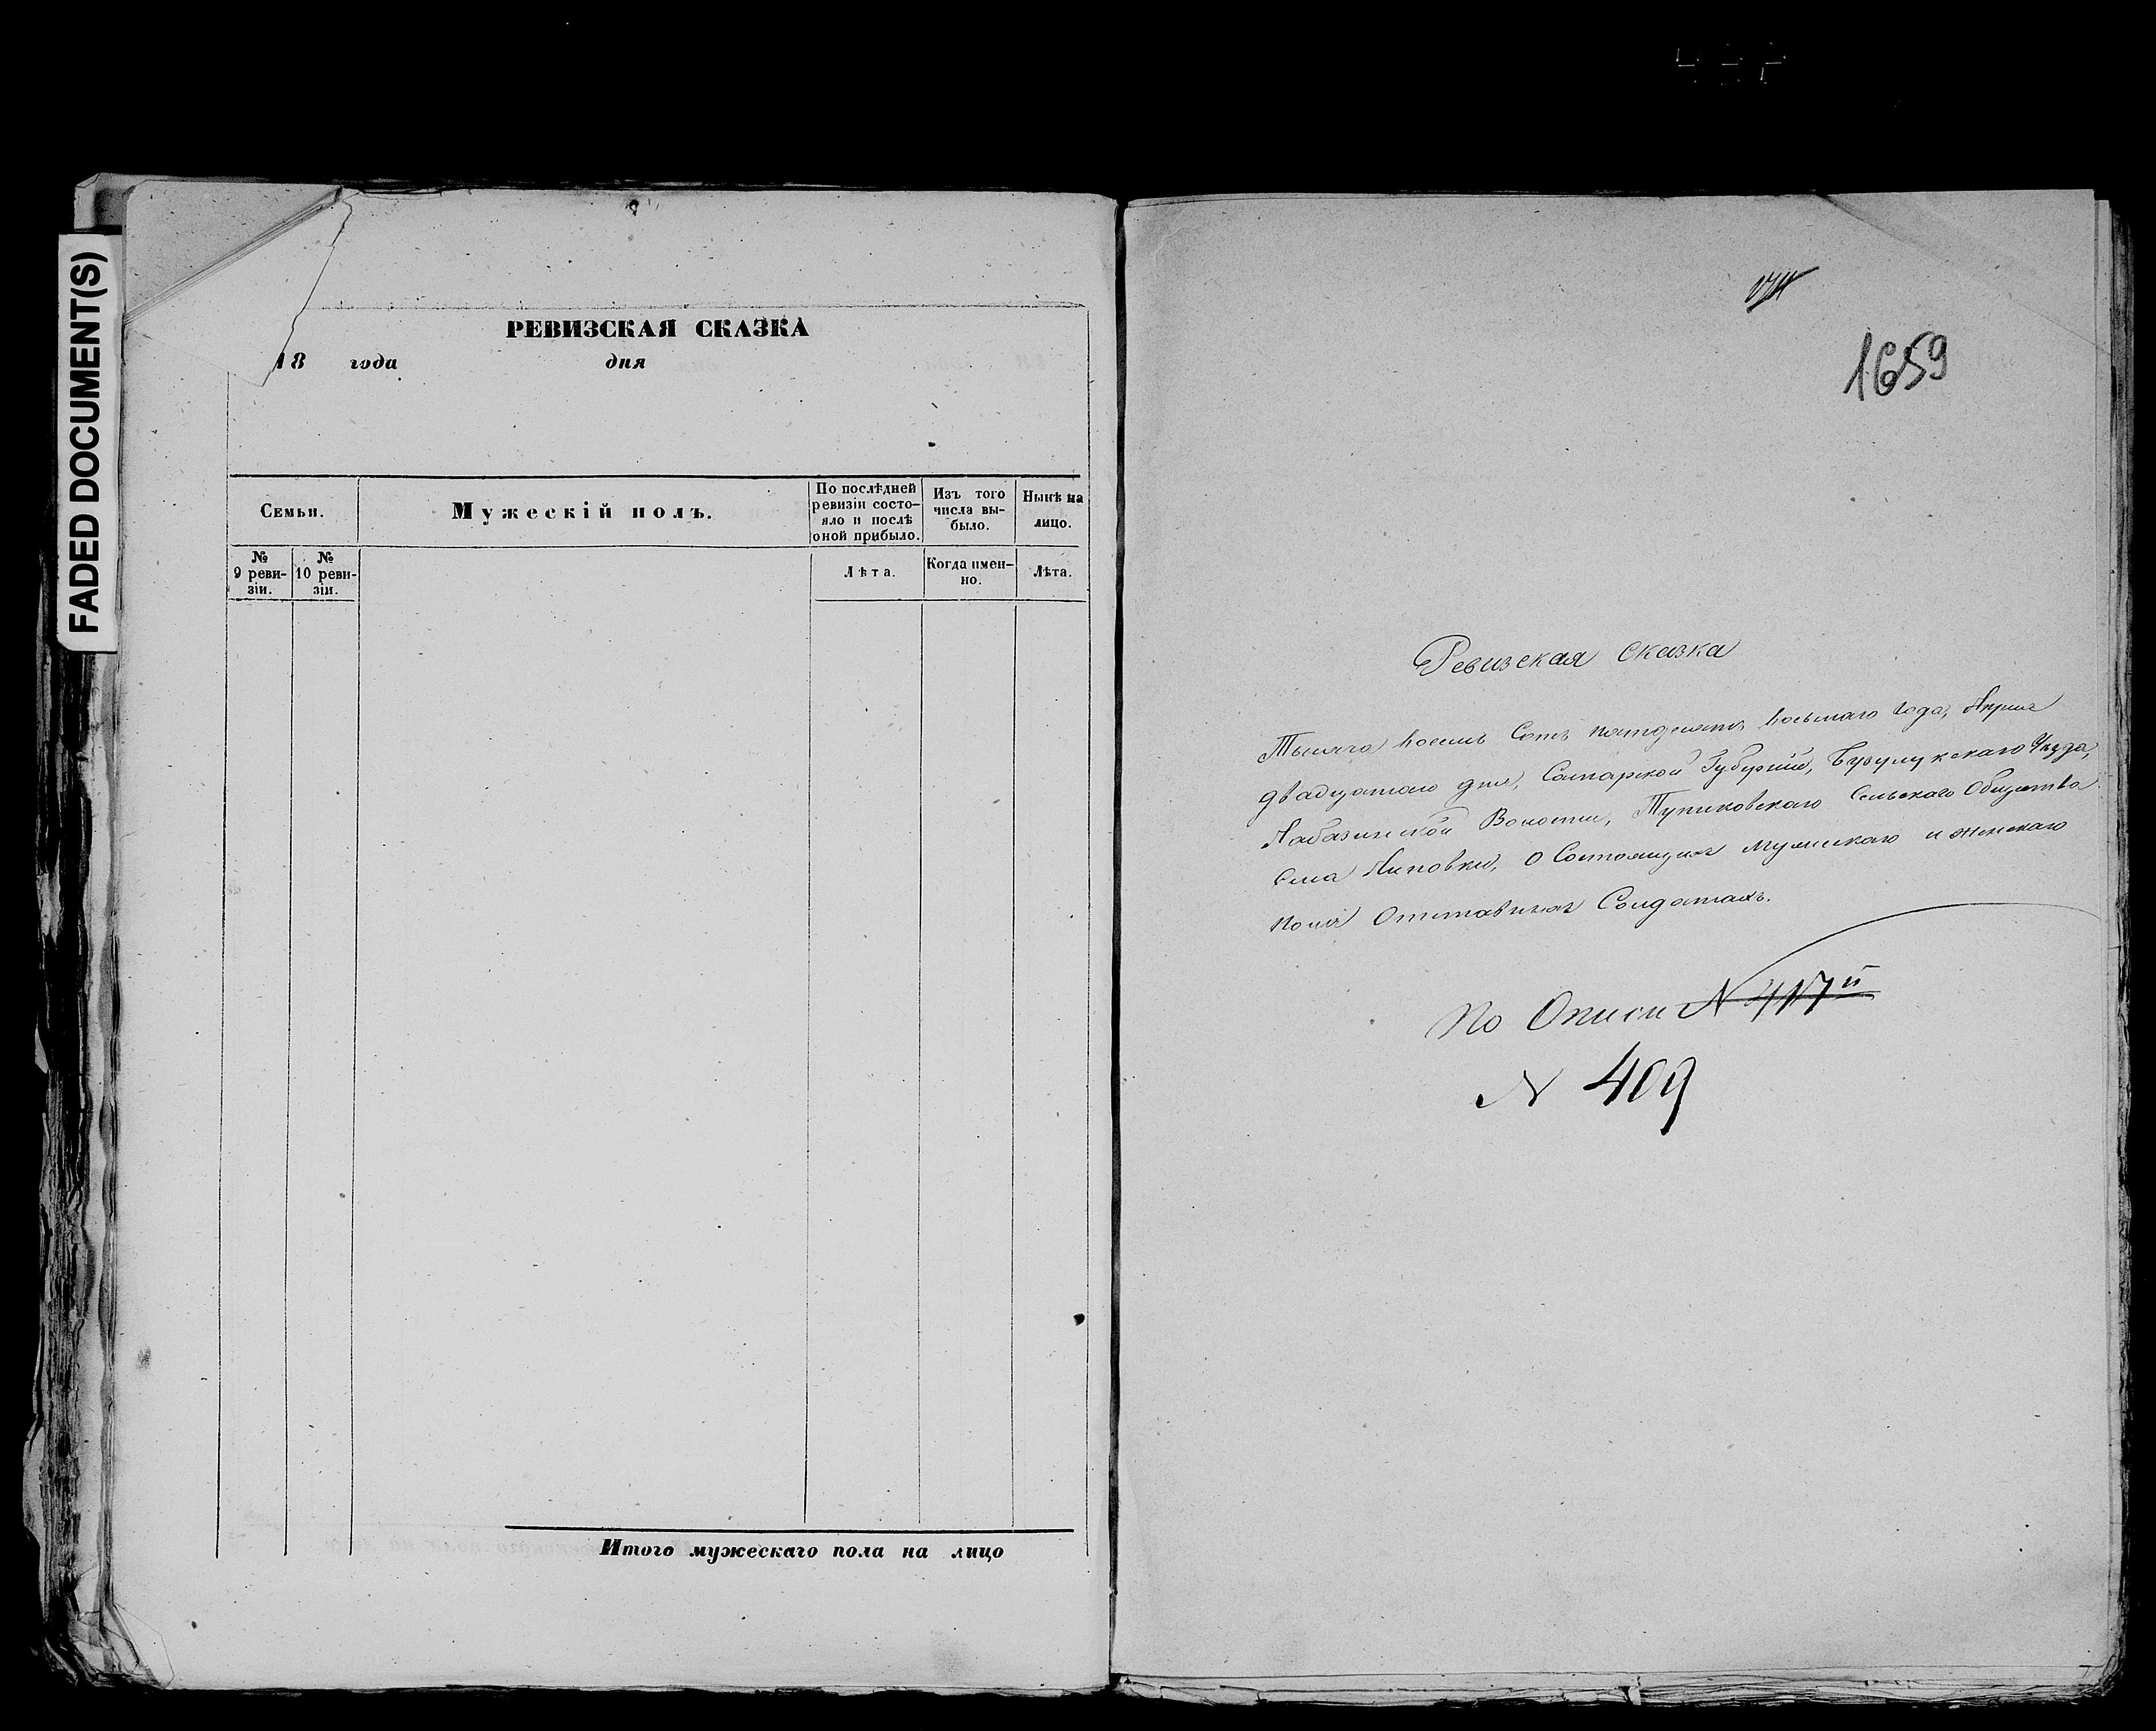 FADED DOCUMENT(S)
РЕВИЗСКАЯ СКАЗКА
18 года дня
Семьи.
Мужескій полъ.
По послѣдней
ревизіи состо-
яло и послѣ
оной прибыло.
Изъ того
числа вы-
было.
Нынѣ на
лицо.
№
9 реви-
зіи.
№
10 реви-
зіи.
Лѣта.
Когда имен-
но.
Лѣта.
Итого мужескаго пола на лицо
1659
Ревизская сказка
Тысяча восемь Сотъ пятьдесятъ восьмаго года, Апреля
двадцатаго дня, Самарской Губерніи, Бузулукскаго Уѣзда,
Лабазинской Волости, Тупиковскаго Сельскаго Общества
Села Липовки, О Состоящихъ мужескаго и женскаго
пола Отставныхъ Солдатахъ.
По Описи N 417й
N 409